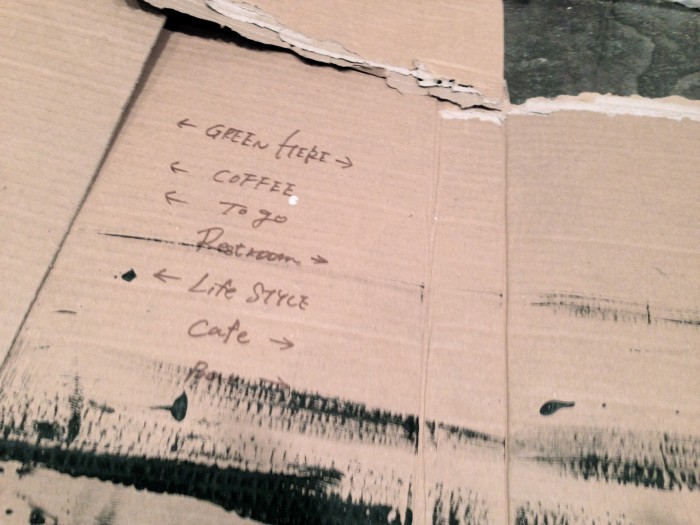 ← GREEN HERE →
← COFFEE
← To go
Restroom →
← Life STYLE
Cafe →
→